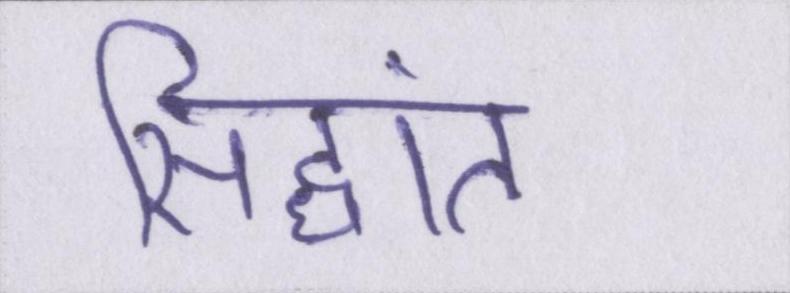 सिद्धांत